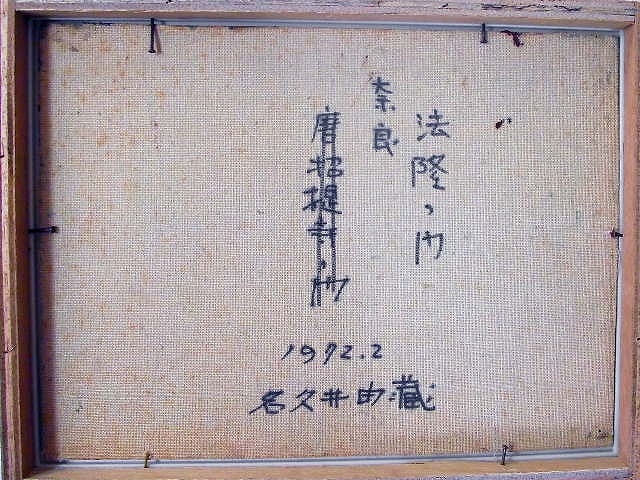 法隆、門
奈良
唐招提寺、門
1972.2
名久井由蔵